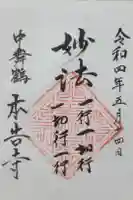 令和四年五月十四日
妙法
一行一切行
一切行一行
中舞鶴
本告寺